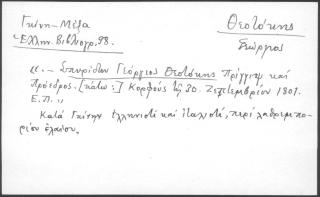 Γκίνη-Μέξα
Ἑλλην. Βιβλιογρ. 98.
Θεοτόκης
Γεώργιος
«.- Σπυρίδων Γεώργιος Θεοτόκης Πρίγγιψ καὶ
Πρόεδρος. [κάτω:] Κορφοὺς τῇ 30. Σεπτεμβρίου 1801.
Ε.Π. »
Κατὰ Γκίνην ἑλληνιστὶ καὶ ἰταλιστί, περὶ λαθρεμπο-
ρίου ἐλαίου.